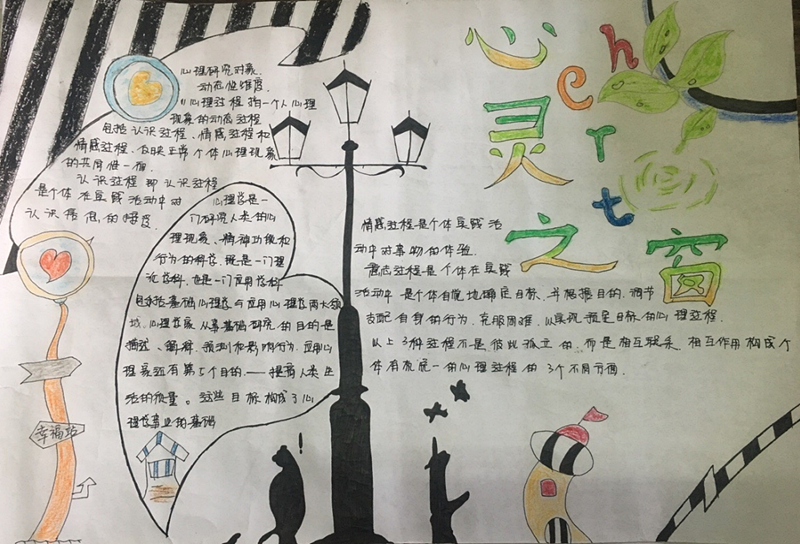 心灵之窗
heart
心理研究对象.
动态性维度.
心理过程 指一个人心理
现象的动态过程
包括认识过程、情感过程和
情感过程、反映正常个体心理现象
的共同性一面.
认识过程即认识过程
是个体在实践活动中对
认识信息的接受
心理学是一
门研究人类的心
理现象、精神功能和
行为的科学, 既是一门理
论学科, 也是一门应用学科
包括基础心理学与应用心理学两大领
域. 心理学家从事基础研究的目的是
描述、解释、预测和影响行为. 应用心
理学家还有第5个目的——提高人类生
活的质量。这些目标构成了心
理学事业的基础
情感过程是个体实践活
动中对事物的体验.
意志过程是个体在实践
活动中 是个体自觉地确定目标、并根据目的、调节
支配自身的行为, 克服困难, 以实现预定目标的心理过程.
以上3种过程不是彼此孤立的, 而是相互联系, 相互作用构成个
体有机统一的心理过程的3个不同方面.
幸福站